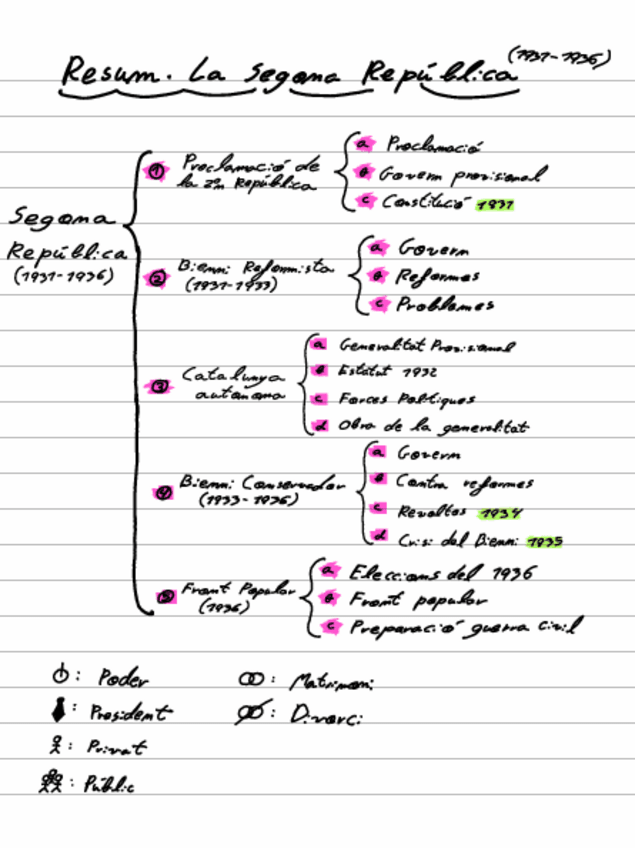 Resum. La Segona República (1931-1936)
Segona
República
(1931-1936)
① Proclamació de
la 2ªn República
a Proclamació
b Govern provisional
c Constitució 1931
② Bienni Reformista
(1931-1933)
a Govern
b Reformes
c Problemes
③ Catalunya
autònoma
a Generalitat Provisional
b Estatut 1932
c Forces Polítiques
d Obra de la generalitat
④ Bienni Conservador
(1933-1936)
a Govern
b Contra reformes
c Revoltes 1934
d Crisi del Bienni 1935
⑤ Front Popular
(1936)
a Eleccions del 1936
b Front popular
c Preparació guerra civil
: Poder
: President
: Privat
: Públic
: Matrimoni
: Divorci